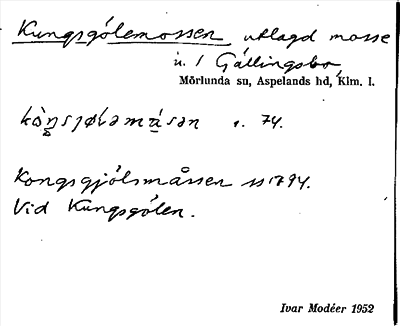 Kungsgölemossen utlagd mosse
u. 1 Gällingsbo
Mörlunda su, Aspelands hd, Klm. l.
s. 74.
Kongsgjölsmåssen 1794.
Vid Kungsgölen.
Ivar Modéer 1952